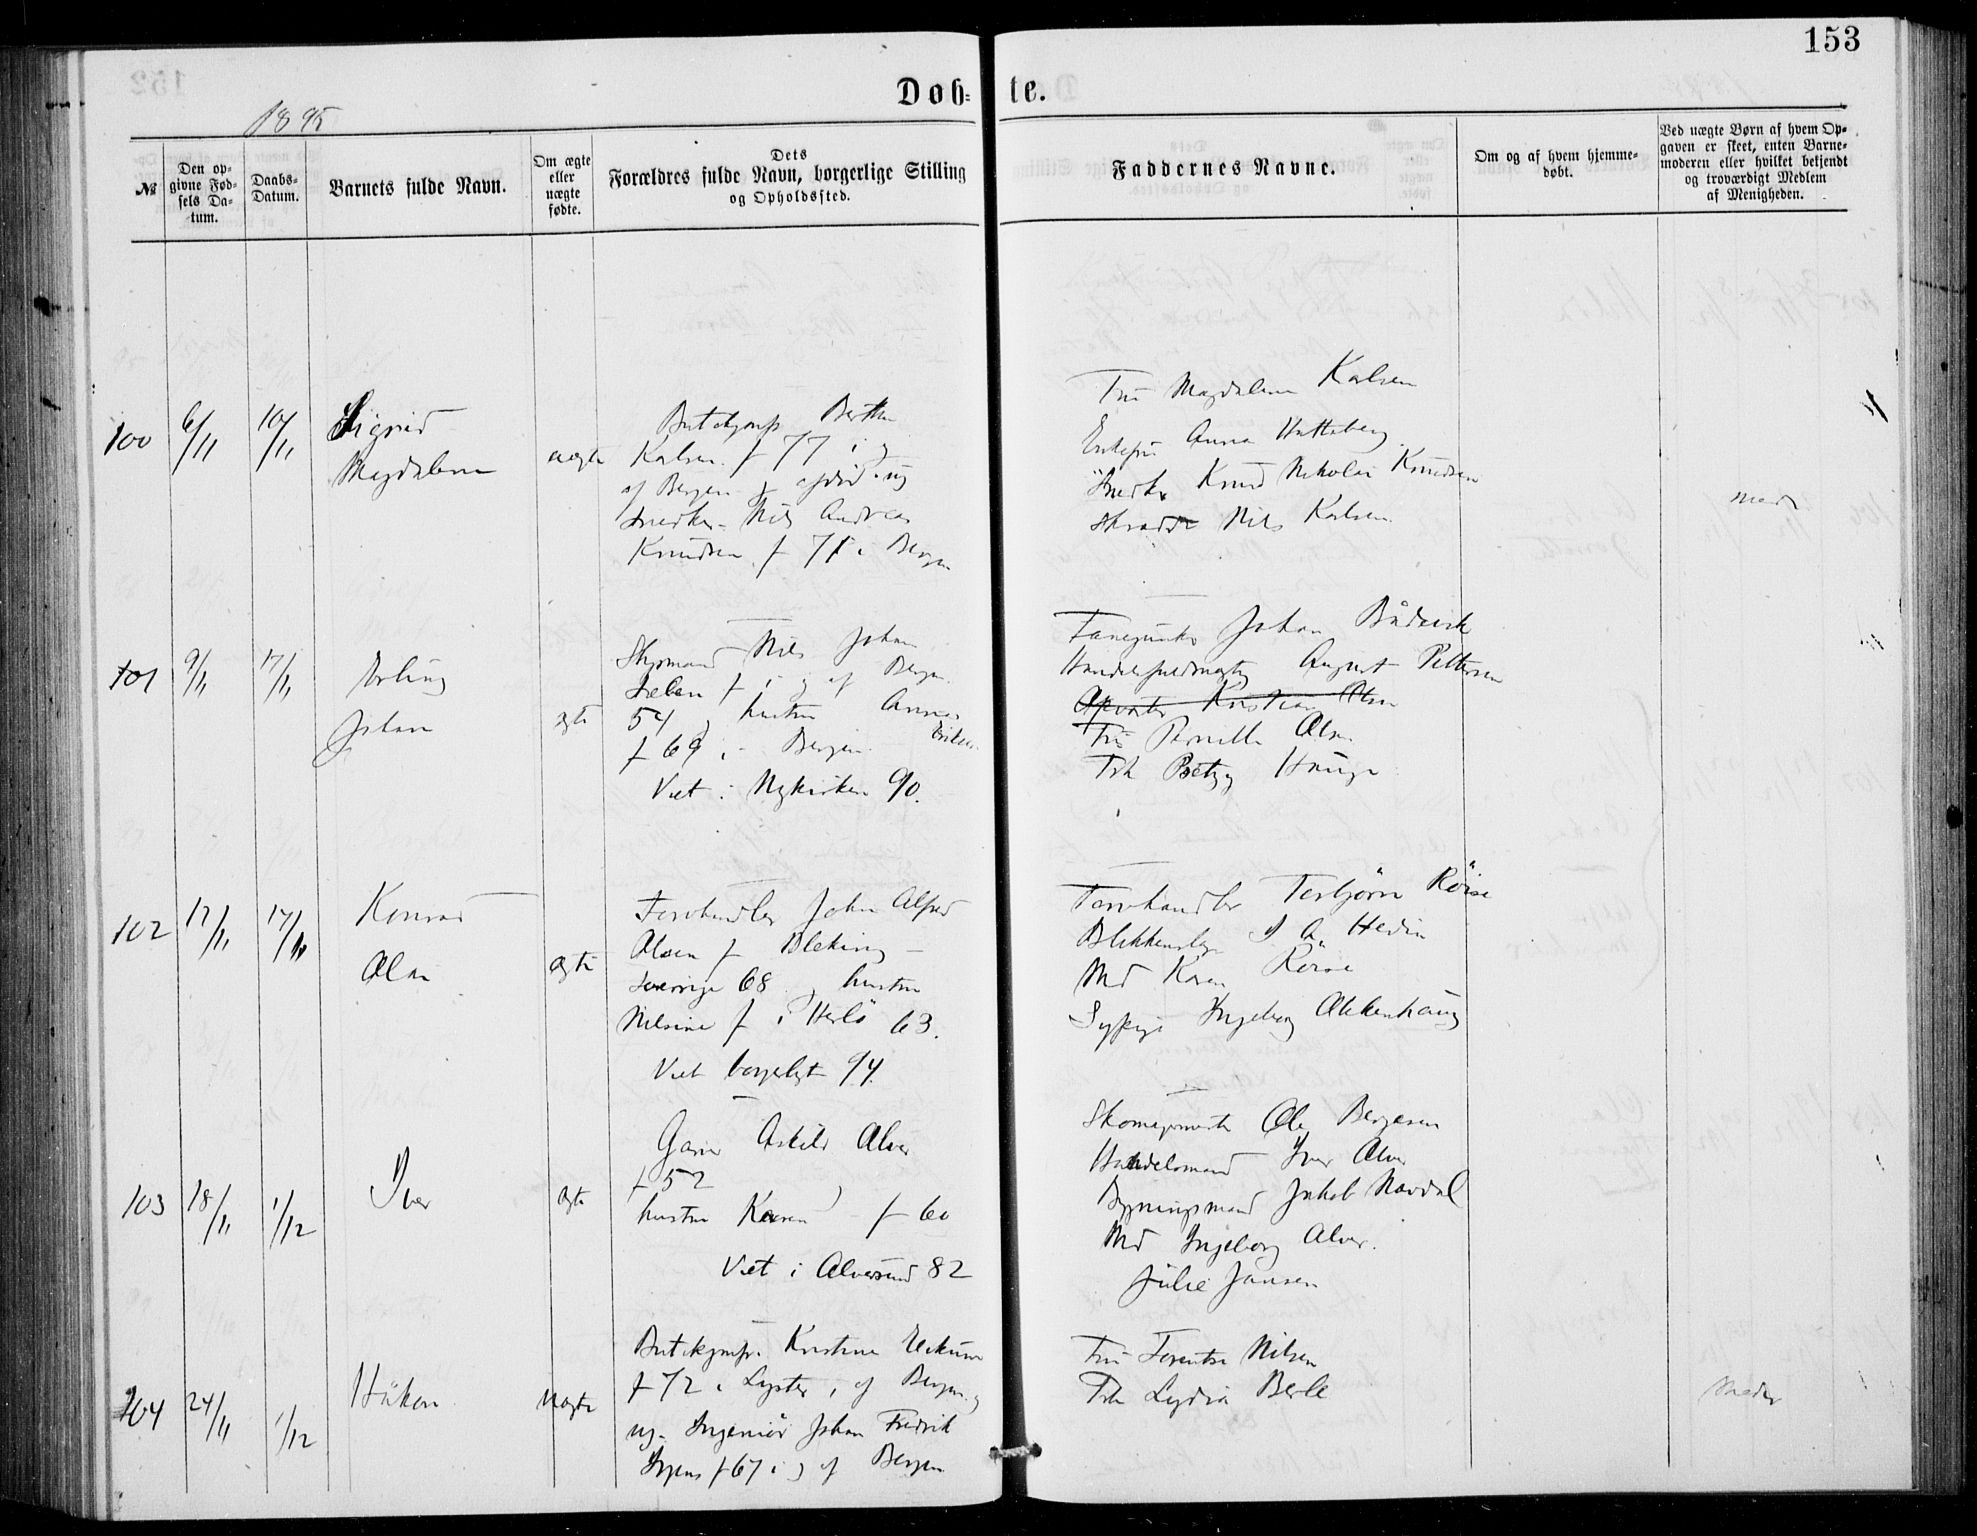 153
Døb-te.
1895
№
Den opgivne Fødsels Datum.
Daabs-Datum.
Barnets fulde Navn.
Om ægte eller uægte fødte.
Dets Forældres fulde Navn, borgerlige Stilling og Opholdssted.
Faddernes Navne.
Om og af hvem hjemmedøbt.
Ved uægte Børn af hvem Opgaven er skeet, enten Barnemoderen eller hvilket bekjendt og troværdigt Medlem af Menigheden.
100
6/11
10/11
Sigrid
Magdalena
uægte
Butikjomf Berthe
Karlsen f 77 i og
af Bergen og afdød ug
Snedker Nils Andreas
Knudsen f 71 i Bergen
Fru Magdalena Karlsen
Enkefru Anna Hatteberg
Snedker Knud Nikolai Knudsen
Skrædder Nils Karlsen
Moder
101
9/11
17/11
Erling
Johan
ægte
Styrmand Nils Johan
f i og af Bergen
54 og hustru Anna
Eriksen
f 69 i Bergen
Viet i Nykirken 90.
Johan Bådsvik
Handelsfuldmægtig August Pettersen
Kristian Olsen
Fru Pernille Olsen
Frk Betzy Hauge
102
12/11
17/11
Konrad
Olai
ægte
Farvehandler John Alfred
Olsen f Bleking
Sverrige 68 og hustru
Nilsine f i Herlö 63.
Viet borgerligt 94.
Farvehandler Torbjørn Röise
Blikkenslager J A Hedin
Md Karen Röise
Sypige Ingeborg Alkenhaug
103
18/11
1/12
Iver
ægte
Garver Askild Alver
f 52
hustru Karen f 60
Viet i Alversund 82
Skomagermester Ole Bergesen
Handelsmand Iver Alver
Bygningsmand Jakob Navdal
Md Ingeborg Alver.
Julie Jansen
104
24/11
1/12
Håkon
Uægte
Butikjomfr. Kristine
f 72 i Lyster, af Bergen og
ug. Ingeniör Johan Fredrik
f 67 i og af Bergen
Fru Nilsen
Frk Lydia Berle
Moder